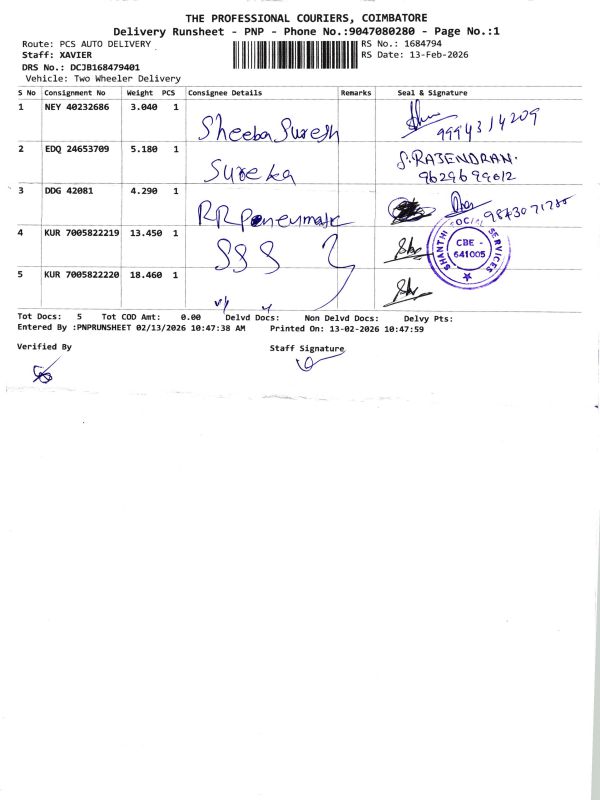 THE PROFESSIONAL COURIERS, COIMBATORE
Delivery Runsheet - PNP - Phone No.:9047080280 - Page No.:1
Route: PCS AUTO DELIVERY
RS No.: 1684794
Staff: XAVIER
RS Date: 13-Feb-2026
DRS No.: DCJB168479401
Vehicle: Two Wheeler Delivery
S No Consignment No Weight PCS Consignee Details Remarks Seal & Signature
1 NEY 40232686 3.040 1 Sheeba Suresh 9994314209
2 EDQ 24653709 5.180 1 Sureka S.RAJENDRAN.
9629699612
3 DDG 42081 4.290 1 RR Pneumatic
4 KUR 7005822219 13.450 1 SSS
SHANTHI SOCIAL SERVICES
CBE -
641005
5 KUR 7005822220 18.460 1
Tot Docs: 5 Tot COD Amt: 0.00 Delvd Docs: Non Delvd Docs: Delvy Pts:
Entered By :PNPRUNSHEET 02/13/2026 10:47:38 AM Printed On: 13-02-2026 10:47:59
Verified By
Staff Signature